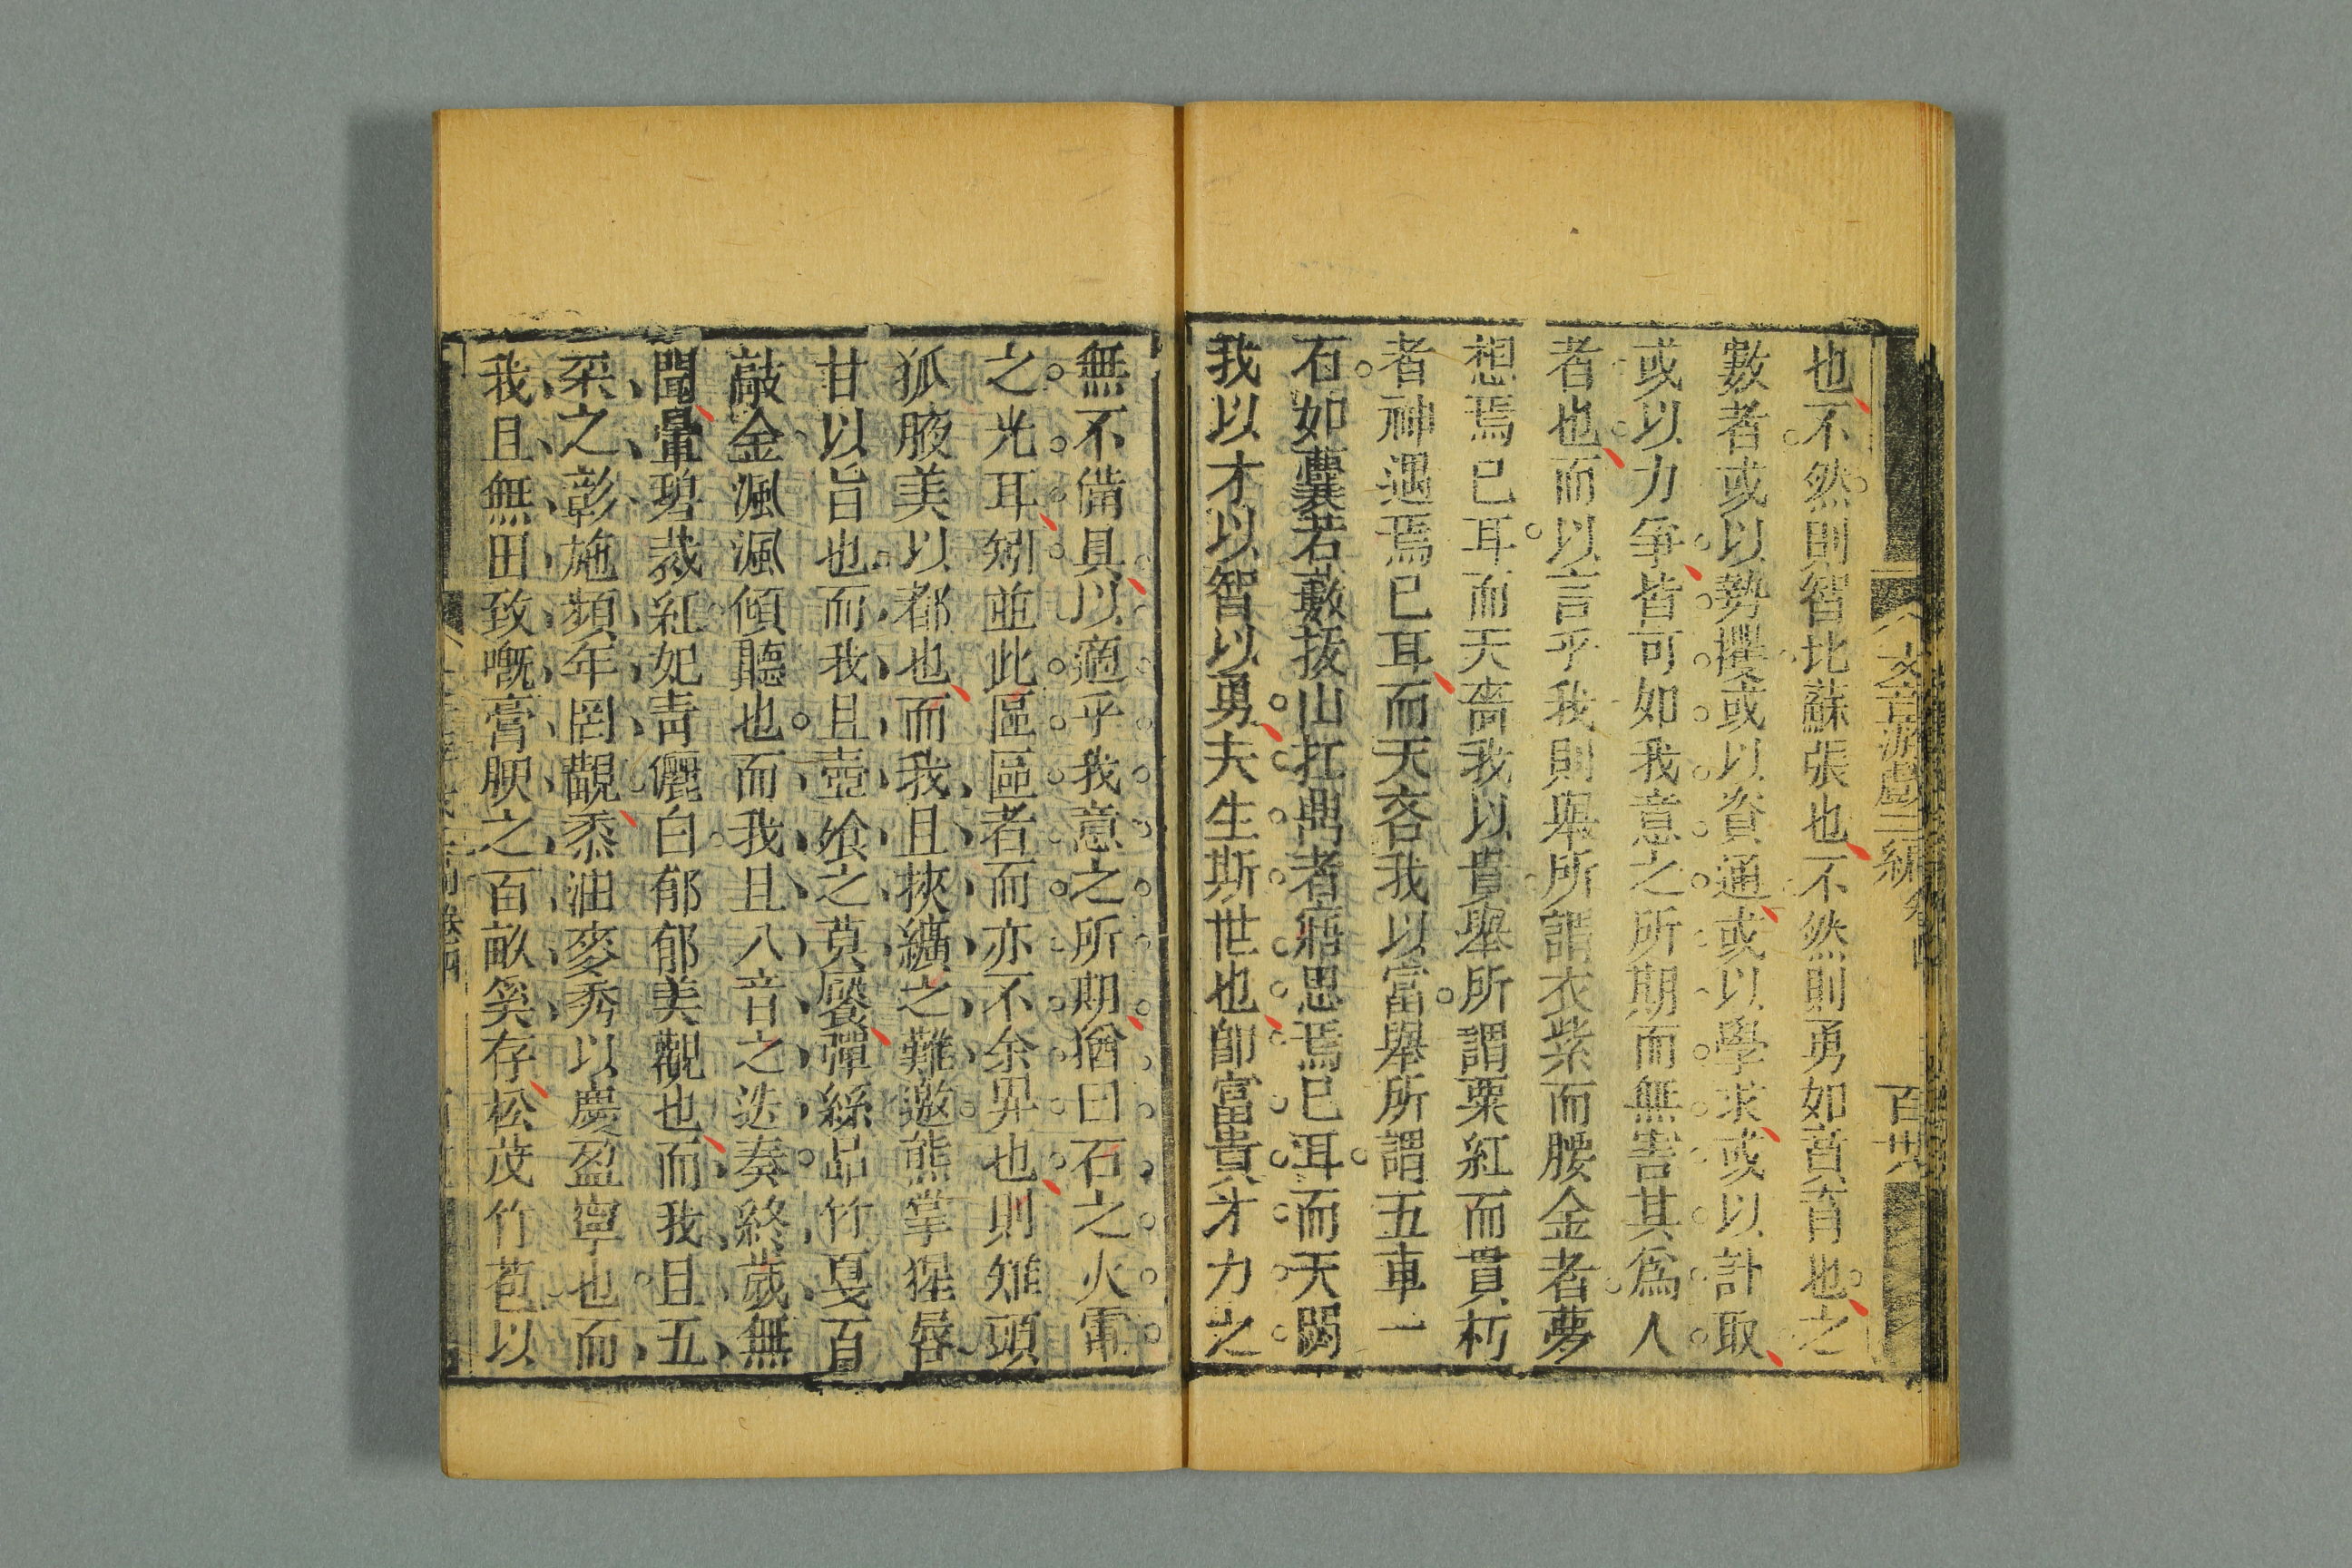 文章游戲二編 卷四 百廿八
也不然則智比蘇張也不然則勇如賁育也之
數者或以勢攫或以資通或以學求或以計取
或以力爭皆可如我意之所期而無害其爲人
者也而以言乎我則舉所謂衣紫而腰金者夢
想焉已耳而天嗇我以貴舉所謂粟紅而貫朽
者神遇焉已耳而天吝我以富舉所謂五車一
石如囊若藪拔山扛鼎者寤思焉已耳而天閼
我以才以智以勇夫生斯世也卽富貴才力之
無不備具以適乎我意之所期猶曰石之火電
之光耳矧並此區區者而亦不余畀也則雉頭
狐腋美以都也而我且挾纊之難邀熊掌猩唇
甘以旨也而我且壺飧之莫饜彈絲品竹戛百
敲金渢渢傾聽也而我且八音之迭奏終歲無
聞暈碧裁紅妃青儷白郁郁美觀也而我且五
采之彰施頻年罔覯黍油麥秀以慶盈寧也而
我且無田致嘅膏腴之百畝奚存松茂竹苞以